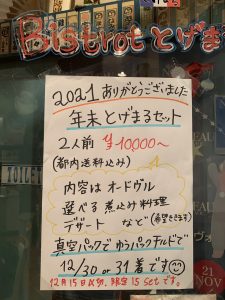 Bistrotとげま
2021ありがとうございました
年末とげまるセット
2人前 ¥10,000〜
(都内送料込み)
内容はオードヴル
選べる煮込み料理
デザート など(希望ききます)
真空パックでゆうパックチルドで
12/30 or 31着です
12月15日〆切、限定15setです。
TOILET
21
NOV